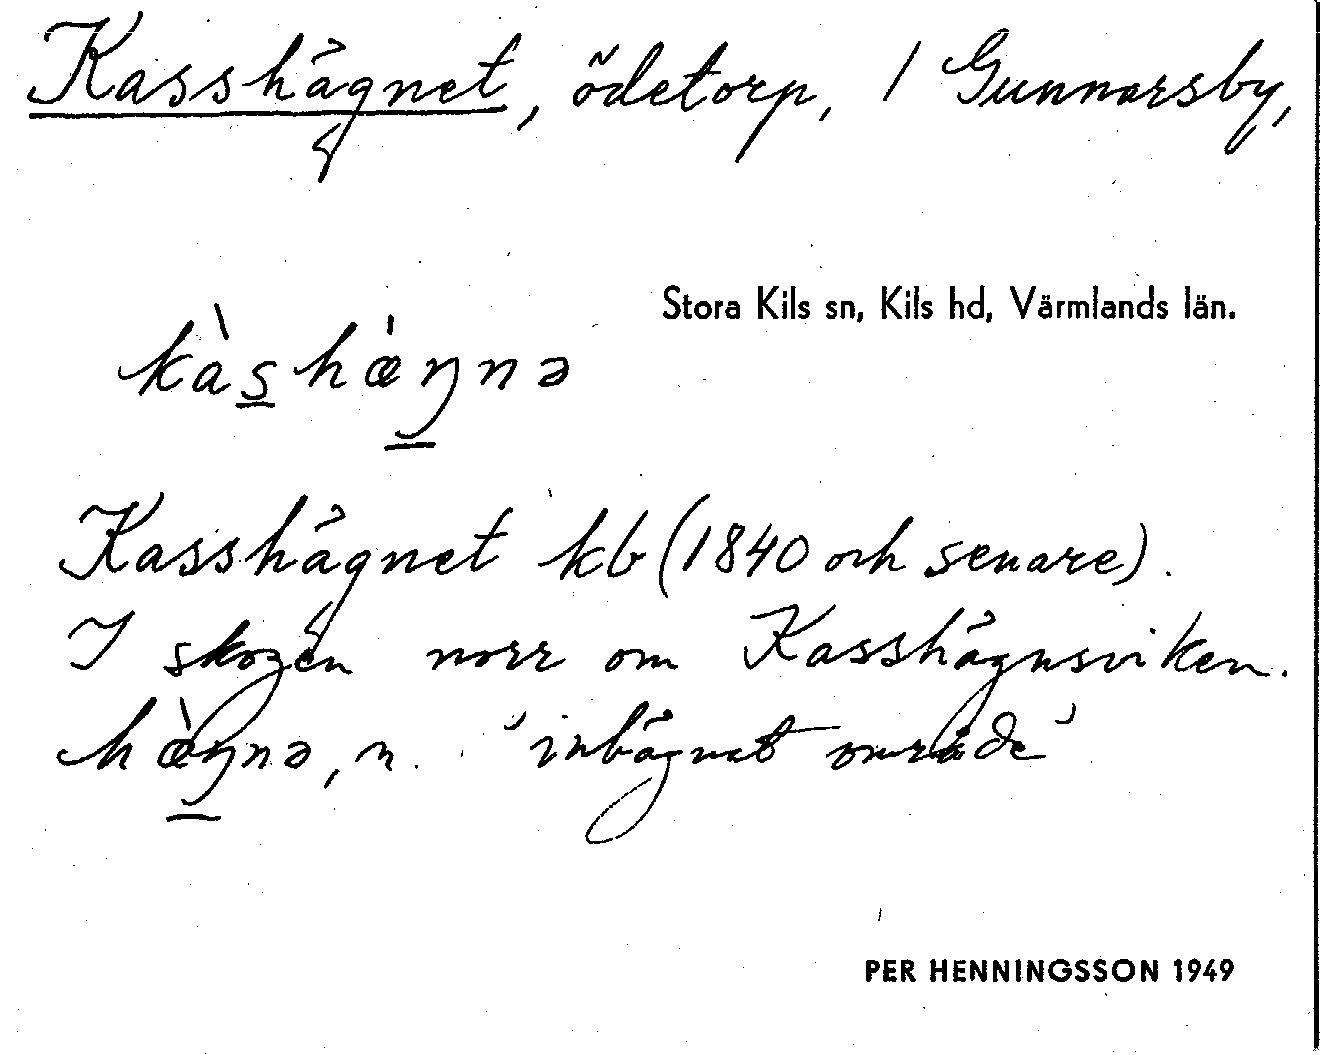 Kasshågnet, ödetorp, 1 Gunnarsby,
Stora Kils sn, Kils hd, Värmlands län.
kàshǽŋnə
Kasshågnet kb (1840 och senare).
I skogen norr om Kasshågnsviken.
hæ̀ŋnə, n. 'inhägnat område'
PER HENNINGSSON 1949